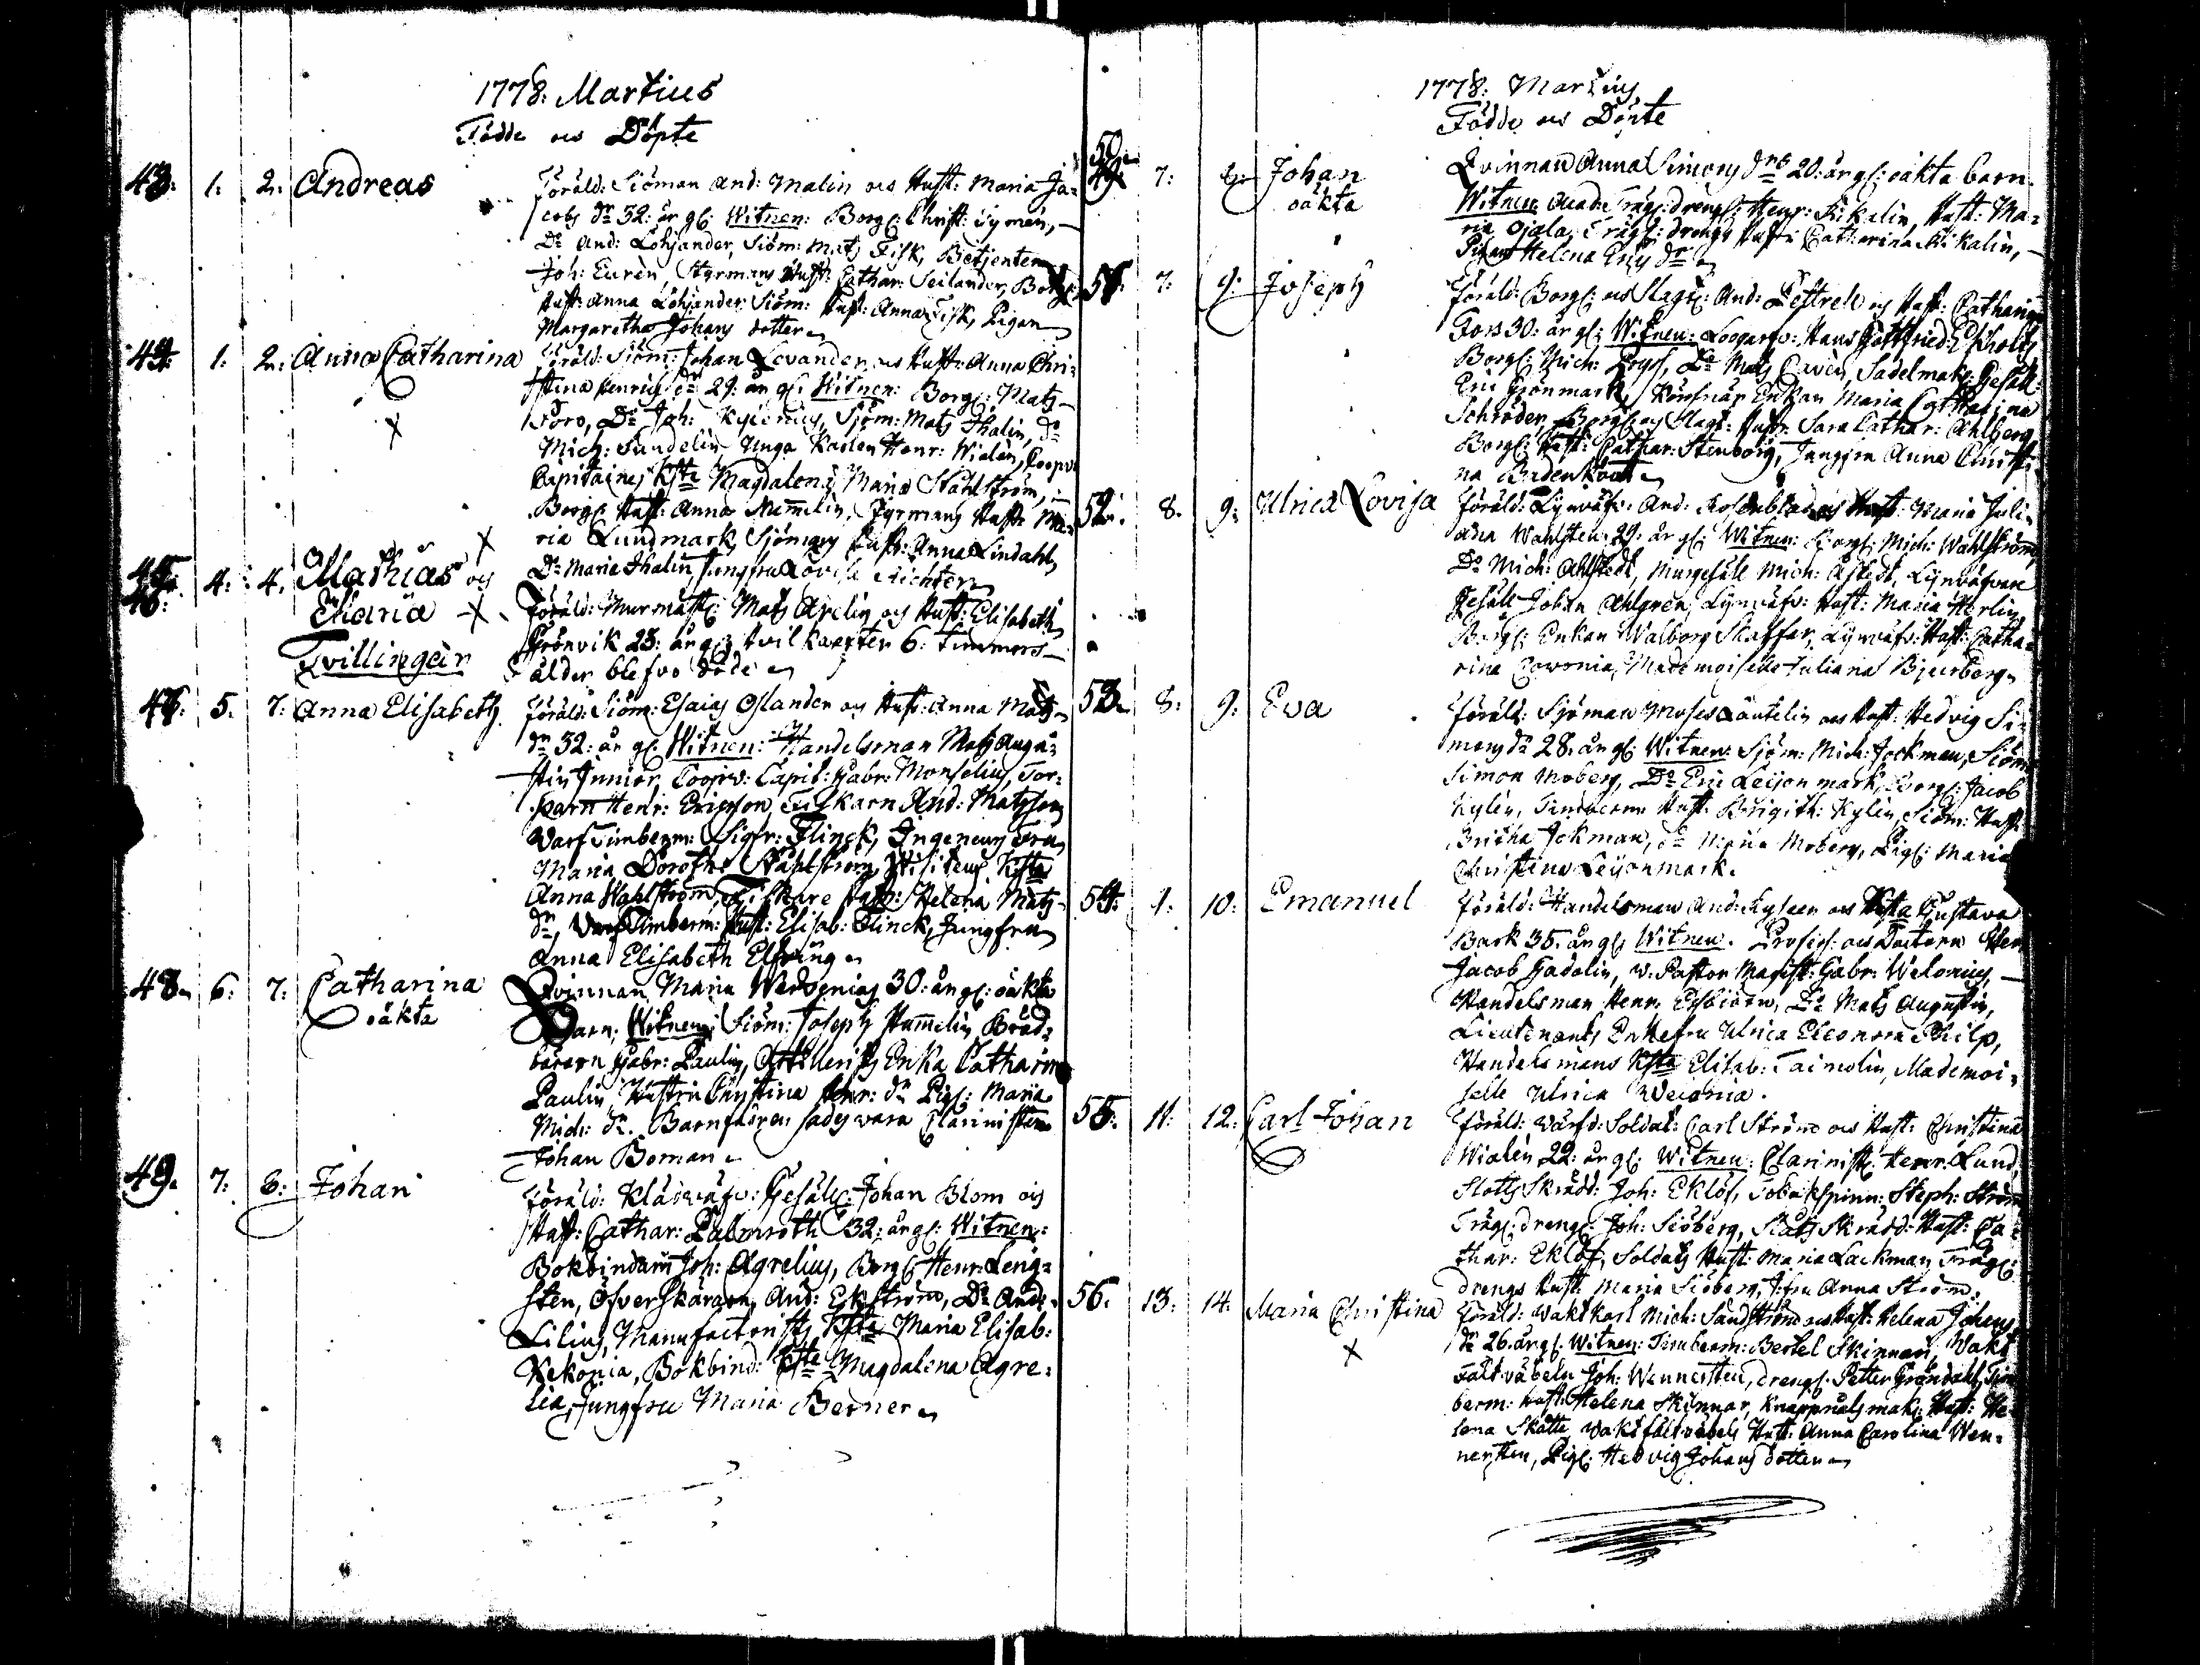 1778: Martius
Födde ock Döpte
43. 1. 2. Andreas
Föräld: Siöman And: Malin ock Hust: Maria Ja=
cobs dr 32: år gl: Witnen: Borgl: Christ:
Do And: Löhjander, Siöm: Mats Fisk, Betjenten
Joh: Eurèn, Styrmans Hust: Cathar: Seilander, Borgl:
Hust: Anna Löhjander, Siöm: Hust: Anna Fisk, Pigan
Margaretha Johans dotter
44. 1. 2. Anna Catharina
Föräld: Siöm: Johan Levander ock Hustr: Anna Chri=
stina Henrichs dr 29: år gl: Witnen: Borgl: Mats
Foro, Do Joh: Kylenius, Sjöm: Mats Thalin, do
Mich: Sundelin, Unga Karlen Henr: Wialen, Coopv:
Capitaines Hsta Magdalena Maria Ståhlström,
Borgl: Hust: Anna Mummelin, Styrmans Hustr: Ma=
ria Lundmark, Sjömans Hustr: Anna Lindahl,
Do Maria Thalin, Jungfru Lovisa Richter
45. 46. 4. 4. Mathias ock
Maria
Tvillingar
Föräld: Murmäst: Mats Arelin ock Hust: Elisabeth
Grönvik 25: år gl: tvil 6: timmars
ålder blefvo döde
47. 5. 7. Anna Elisabeth
Föräld: Siöm: Esaias Oslander ock Hust: Anna Mats
dr 32: år gl: Witnen: Handelsman Mats Augu=
stin Junior, Coopv: Capit: Gabr: Monselius, Tor=
parn Henr: Ericsson, Fiskarn And: Matsson
Varf Timberm: Sigfr: Flinck, Ingeneurs Fru
Maria Dorothe Ståhlström, Visiteurs Hsta
Anna Wahlström, Fiskare Hust: Helena Mats
dr, Varf Timberm: Hust: Elisab: Flinck, Jungfru
Anna Elisabeth Elfving
48. 6. 7. Catharina
oäkta
Qvinnan Maria 30: år gl: oäkta
Barn: Witnen: Siöm: Joseph Hummelin, Bräd=
bäraren Gabr: Paulin, Artillerists Enka Catharina
Paulin, Hustru Christina Henr: dr Pig: Maria
Mich: dr. Barnfadren sades vara Clarinisten
Johan Boman
49. 7. 8. Johan
Föräld: Klädväfv: Gesäll: Johan Blom ock
Hust: Cathar: Palmroth 32: år gl: Witnen:
Bokbindarn Joh: Agrelius, Borgl: Henr: Leng=
sten, Öfverskäraren And: Ekström, Do And:
Lilius, Manufactorists Hsta Maria Elisab:
Kekonia, Bokbind: Hsta Magdalena Agre=
lia, Jungfru Maria Berner
1778: Martius
Födde ock Döpte
50. 7. 8. Johan
oäkta
Qvinnan Anna Simons dr 20: år gl: oäkta barn.
Witnen: Träg: drengl: Henr: Mikalin, Hust: Ma=
ria Ojala, Träg: drengs Hustr: Catharina Mikalin,
Pigan Helena Erics dr
51. 7. 9. Joseph
Föräld: Borgl: ock Slagt: And: Lettrell ock Hust: Catharina
Fors 30: år gl: Witnen: Hans Gottfried Ekholts
Borgl: Mich: Do Mats Cavèn, Sadelmak: Gesäll
Eric Grönmark, Enkan Maria Catharina
Schröder, Borgl: ock Slagt: Hustr: Sara Cathar: Ahlberg,
Borgl: Hust: Cathar: Stenborg, Jungfru Anna Christi=
na
52. 8. 9. Ulrica Lovisa
Föräld: Lynväfv: And: Rosenblad ock Hust: Maria Juli=
ana Wahlsten 29: år gl: Witnen: Borgl: Mich: Wahlström,
Do Mich: Ahlstedt, Murgesäll Mich: Lynväfvare
Gesäll Johan Ahlgren, Lynväfv: Hust: Maria Herlin
Borgl: Enkan Walborg Skaffar, Lynväfv: Hust: Catha=
rina Cawonia, Mademoiselle Juliana Bjurberg
53. 8. 9. Eva
Föräld: Sjöman Moses Läntelin ock Hust: Hedvig Si=
mons dr 28. år gl: Witnen: Sjöm: Mich: Jockman, Siöm:
Simon Moberg, Do Eric Leijonmark, Borgl: Jacob
Kylén, Timberm: Hust: Brigith: Kylen, Siöm: Hust:
Britha Jokman, do Maria Moberg, Pigl: Maria
Christina Leijonmark.
54. 9. 10. Emanuel
Föräld: Handelsman And: Kyleen ock Hsta Gustava
Bark 35. år gl: Witnen: Profess: ock Doctorn Herr
Jacob Gadolin, v. Pastor Magist: Gabr: Welonius,
Handelsman Henr: Esbiörn, Do Mats Augustin,
Lieutenants Enkefru Ulrica Eleonora Philp,
Handelsmans Hsta Elisab: Taimelin, Mademoi=
selle Ulrica
55. 11. 12. Carl Johan
Föräld: Vårfd: Soldat: Carl Ström ock Hust: Christina
Wialèn 22: år gl: Witnen: Clarinist: Henr: Lund,
Slotts Skrädd: Joh: Eklöf, Tobakspinn: Steph: Ström
Träg: drengl: Joh: Siöberg, Slotts Skrädd: Hust: Ca=
thar: Eklöf, Soldats Hust: Maria Lackman, Träg:
drengs Hust: Maria Siöberg, Jfru Anna Ström.
56. 13. 14. Maria Christina
Föräld: Vaktkarl Mich: Sandström ock Hust: Helena Johans
dr 26. år gl: Witnen: Timberm: Bertel Skinnari, Vakt
fältväbeln Joh: Wennersten, drengl: Petter Gröndahl, Tim=
berm: Hust: Helena Skinnar, Knappnålsmak: Hust: He=
lena Skätte, Vaktfältväbels Hust: Anna Carolina Wen=
nersten, Pigl: Hedvig Johans dotter